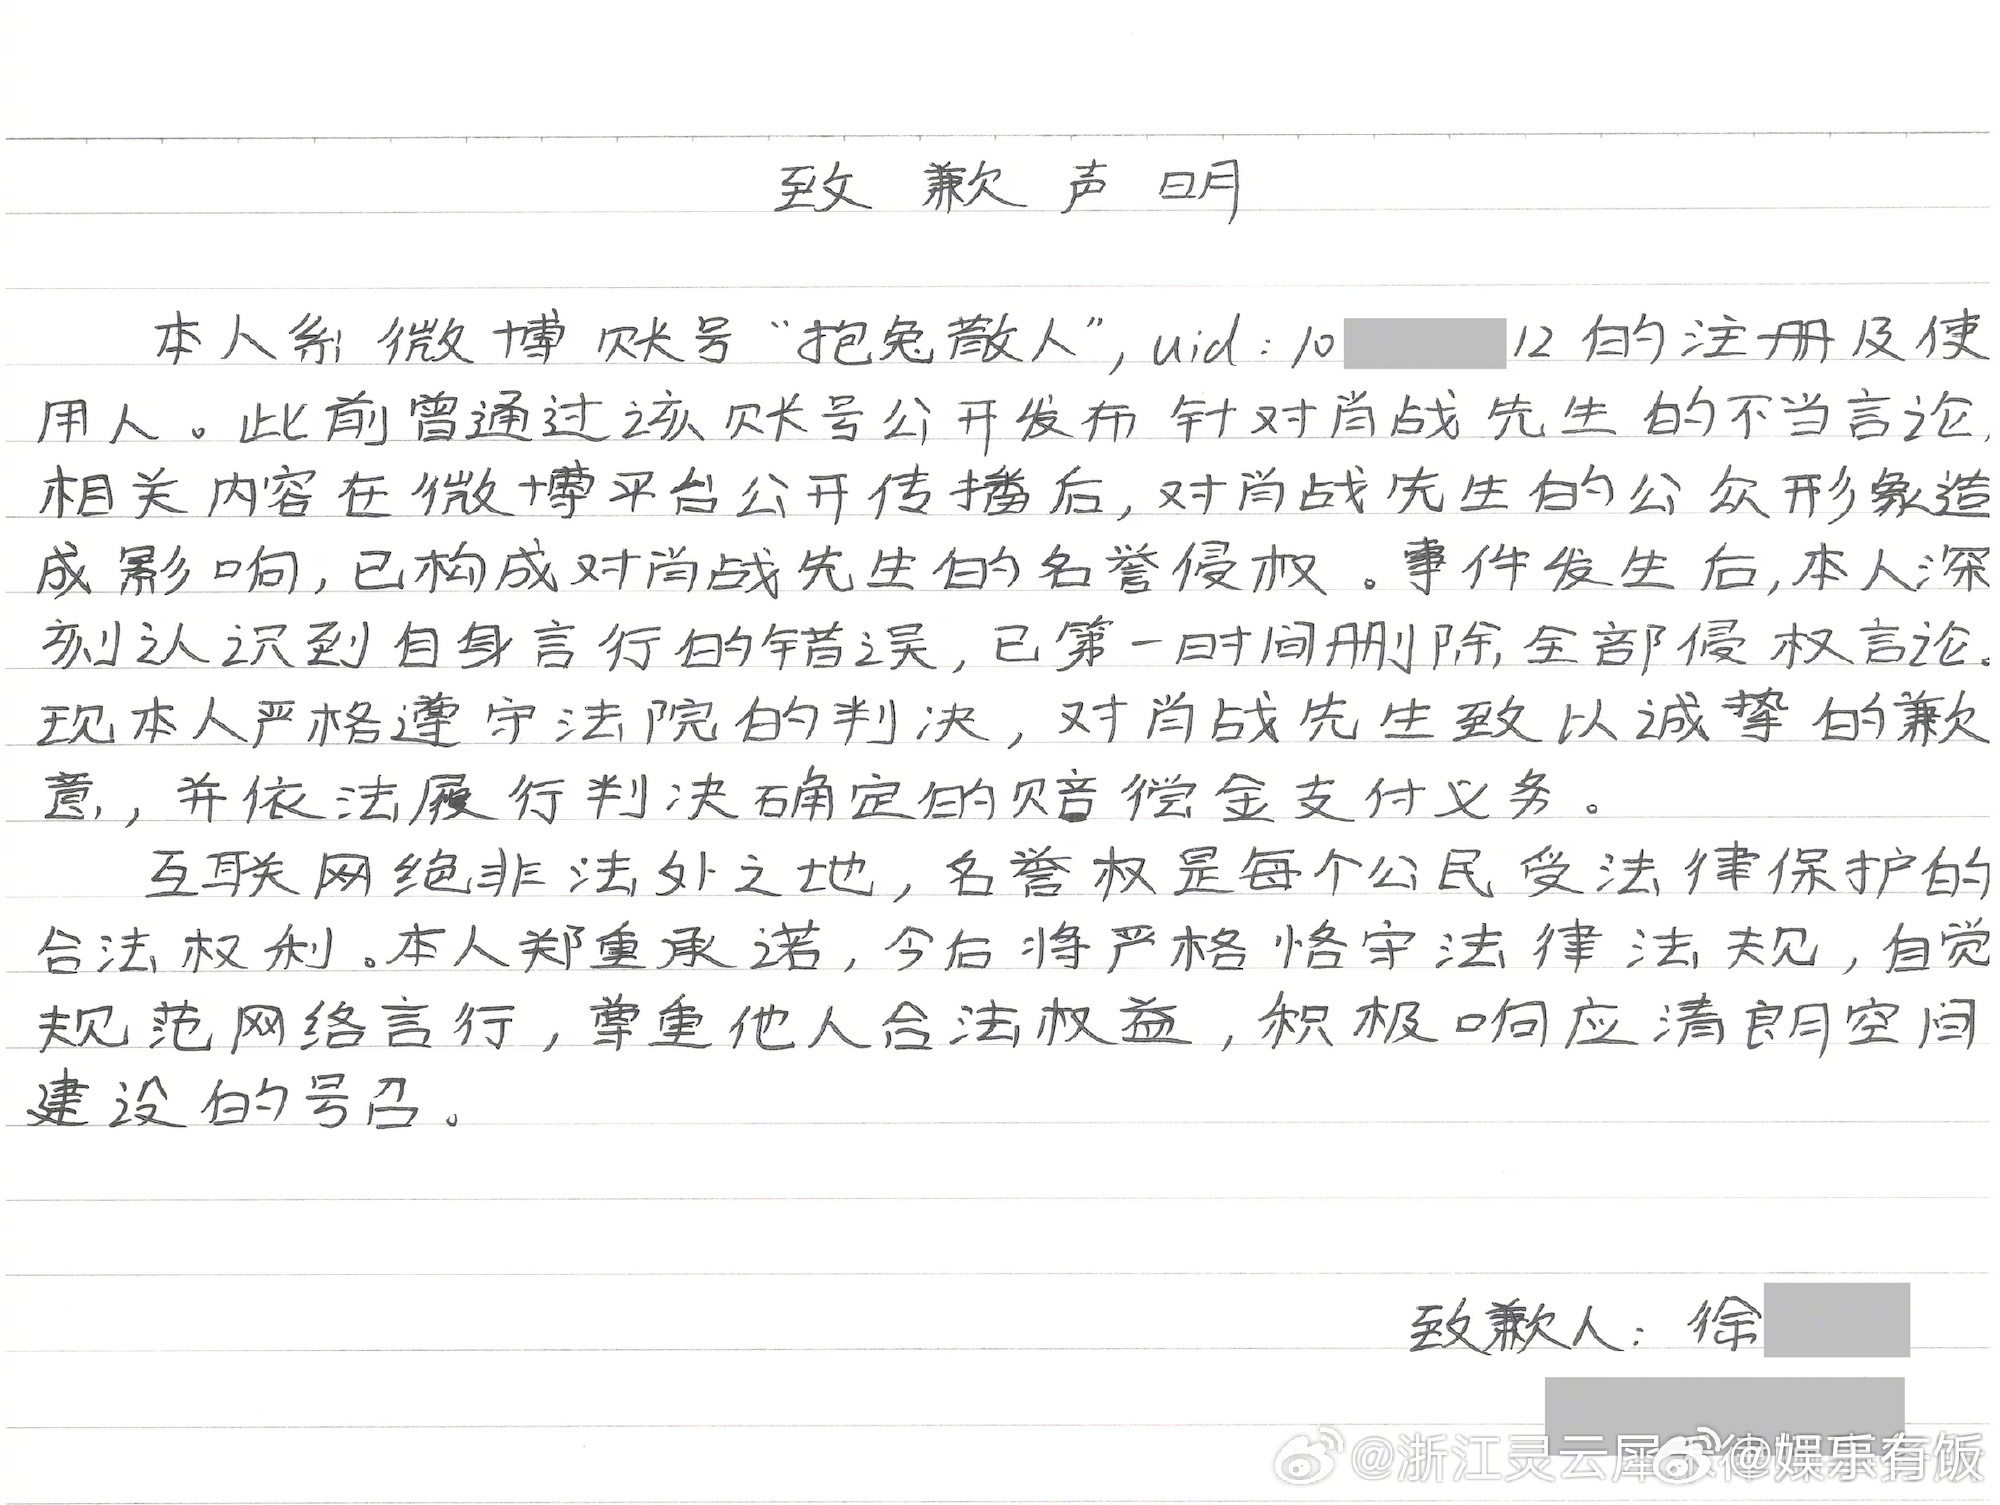 致歉声明
本人系微博账号“抱兔散人”, uid: 10 12的注册及使
用人。此前曾通过该账号公开发布针对肖战先生的不当言论,
相关内容在微博平台公开传播后,对肖战先生的公众形象造
成影响,已构成对肖战先生的名誉侵权。事件发生后,本人深
刻认识到自身言行的错误,已第一时间删除全部侵权言论。
现本人严格遵守法院的判决,对肖战先生致以诚挚的歉
意,并依法履行判决确定的赔偿金支付义务。
互联网绝非法外之地,名誉权是每个公民受法律保护的
合法权利。本人郑重承诺,今后将严格恪守法律法规,自觉
规范网络言行,尊重他人合法权益,积极响应清朗空间
建设的号召。
致歉人: 徐
@浙江灵云犀 律@娱乐有饭